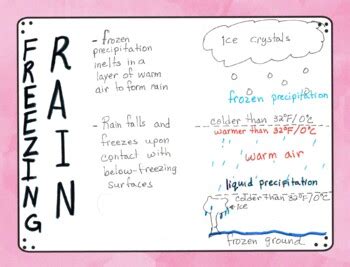 FREEZING
RAIN
- frozen
precipitation
melts in a
layer of warm
air to form rain
- Rain falls and
freezes upon
contact with
below-freezing
surfaces
Ice crystals
frozen precipitation
colder than 32°F/0°C
warmer than 32°F/0°C
warm air
liquid precipitation
colder than 32°F/0°C
Ice
frozen ground